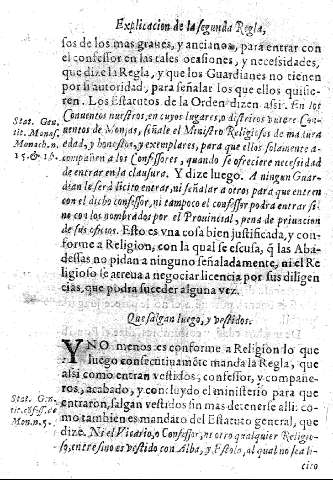 Explicacion de la segunda Regla,
sos de los mas graves, y ancianos, para entrar con
el confessor en las tales ocasiones, y necessidades,
que dize la Regla, y que los Guardianes no tienen
por si autoridad, para señalar los que ellos quisie-
ren. Los Estatutos de la Orden dizen assi. En los
Conuentos nuestros, en cuyos lugares, o distritos vuiere Con-
uentos de Monjas, señale el Ministro Religiosos de madura
edad, y honestos, y exemplares, para que ellos solamente a-
compañen a los Confessores, quando se ofreciere necessidad
de entrar en la clausura. Y dize luego. A ningun Guar-
dian le serà licito entrar, ni señalar a otros para que entren
con el dicho confessor, ni tampoco el confessor podra entrar si-
no con los nombrados por el Prouincial, pena de priuacion
de sus oficios. Esto es vna cosa bien justificada, y con-
forme a Religion, con la qual se escusa, q̃ las Aba-
dessas no pidan a ninguno señaladamente, ni el Re
ligioso se atreua a negociar licencia por sus diligen
cias, que podra suceder alguna vez.
Stat. Gen.
tit. Monas.
Monach. n.
15. & 16.
Que salgan luego, y vestidos.
Y NO menos es conforme a Religion lo que
luego consecutiuamẽte manda la Regla, que
assi como entran vestidos, confessor, y compañe-
ros, acabado, y concluydo el ministerio para que
entraron, salgan vestidos sin mas detenerse alli: co-
mo tambien es mandato del Estatuto general, que
dize. Ni el Vicario, o Confessor, ni otro qualquier Religio-
so, entre sino es vestido con Alba, y Estola, al qual no sea li-
cito
Stat. Gen.
Mon. n. 5.